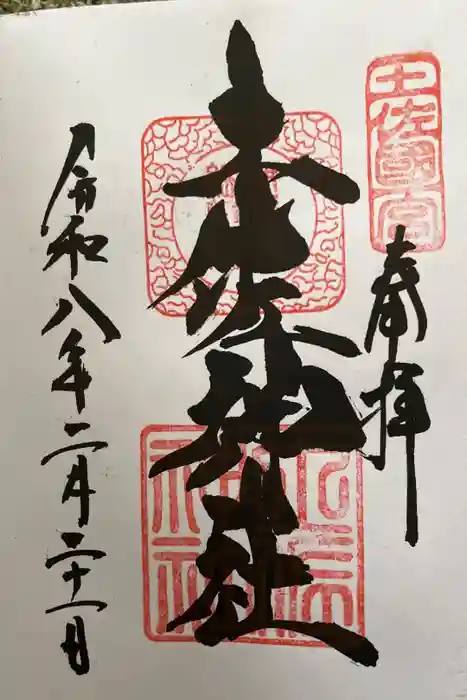 土佐國一宮
奉拝
土佐神社
令和八年二月二十一日